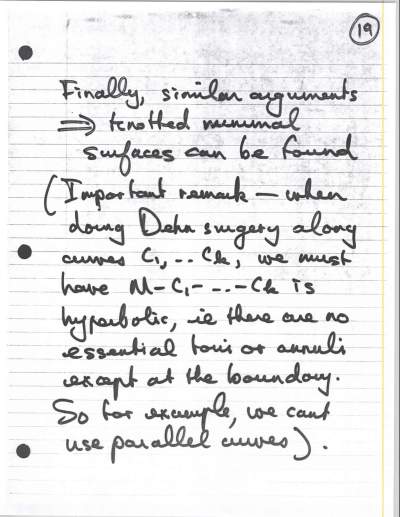 19
Finally, similar arguments
⇒ knotted minimal
surfaces can be found
(Important remark — when
doing Dehn surgery along
curves C₁, .. Ck, we must
have M-C₁- ... -Ck is
hyperbolic, ie there are no
essential tori or annuli
except at the boundary.
So for example, we cant
use parallel curves).